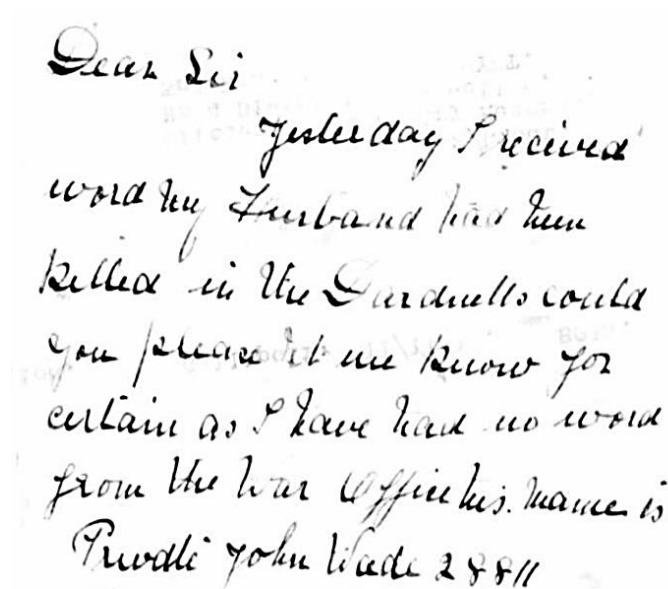 Dear Sir
Yesterday I received
word my Husband had been
killed in the Dardnells could
you please let me know for
certain as I have had no word
from the War Office his name is
Private John Wade 2881